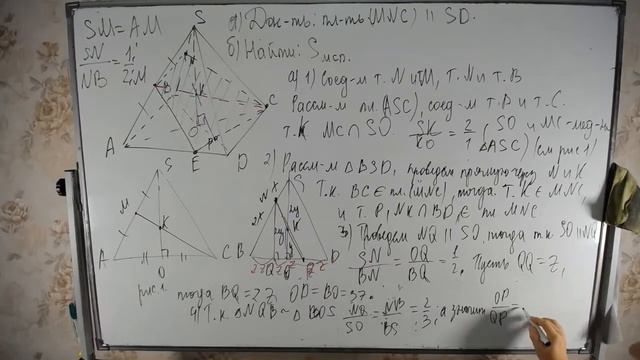 SM = AM
SN/NB = 1/2
а) Док-ть: пл-ть (MNC) || SD.
б) Найти: S
а) 1) Соед-м т. N и M, т. N и т. B
Рассм-м пл. ASC), соед-м т. P и т. C.
т. K MC ∩ SO. SK/KO = 2/1, SO и MC - мед-
△ASC) (см рис 1)
2) Рассм-м △BSD, проведем прямую через N и K
Т.к. ∈ пл. (MNC), тогда т. K ∈ MNC
и т. P, NK ∩ BD, ∈ пл MNC
3) Проведем NQ || SO, тогда т.к. SO || NQ
SN/BN = OQ/BQ = 1/2. Пусть OQ = z,
тогда BQ = 2z OD = BO = 3z.
4) Т.к. △NQB ~ △BOS NQ/SO = NB/BS = 2/3, а значит OP/QP =
S
M
N
K
C
O
P
A
E
D
S
M
K
A
O
C
рис 1.
S
N
x
2x
2y
K
B
2z
Q
z
O
D